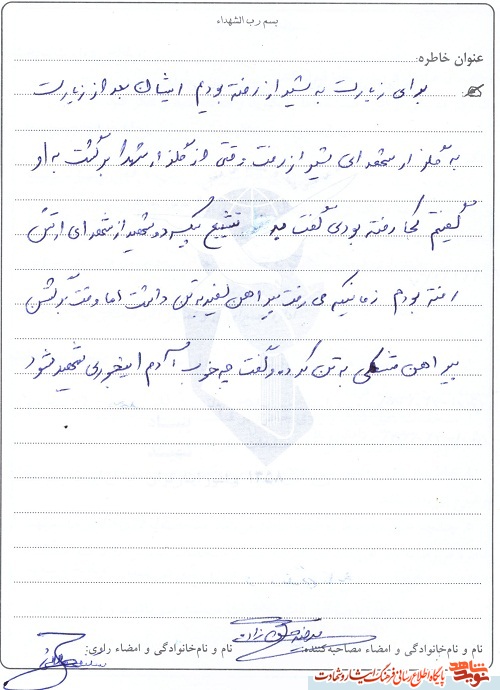 بسم رب الشهداء
عنوان خاطره:
برای زیارت به شیراز رفته بودیم ایشان بعد از زیارت
به گلزار شهدای شیراز رفت وقتی از گلزار شهدا برگشت به او
گفتیم کجا رفته بودی گفت تشییع پیکر دو شهید از شهدای ارتش
رفته بودم زمانیکه می رفت پیراهن سفید به تن داشت اما وقت برگشتن
پیراهن مشکی به تن کرده و گفت چه خوب آدم اینجوری شهید شود
نام و نام‌خانوادگی و امضاء مصاحبه‌کننده:
نام و نام‌خانوادگی و امضاء راوی:
نوید شاهد
پایگاه اطلاع رسانی فرهنگ ایثار و شهادت